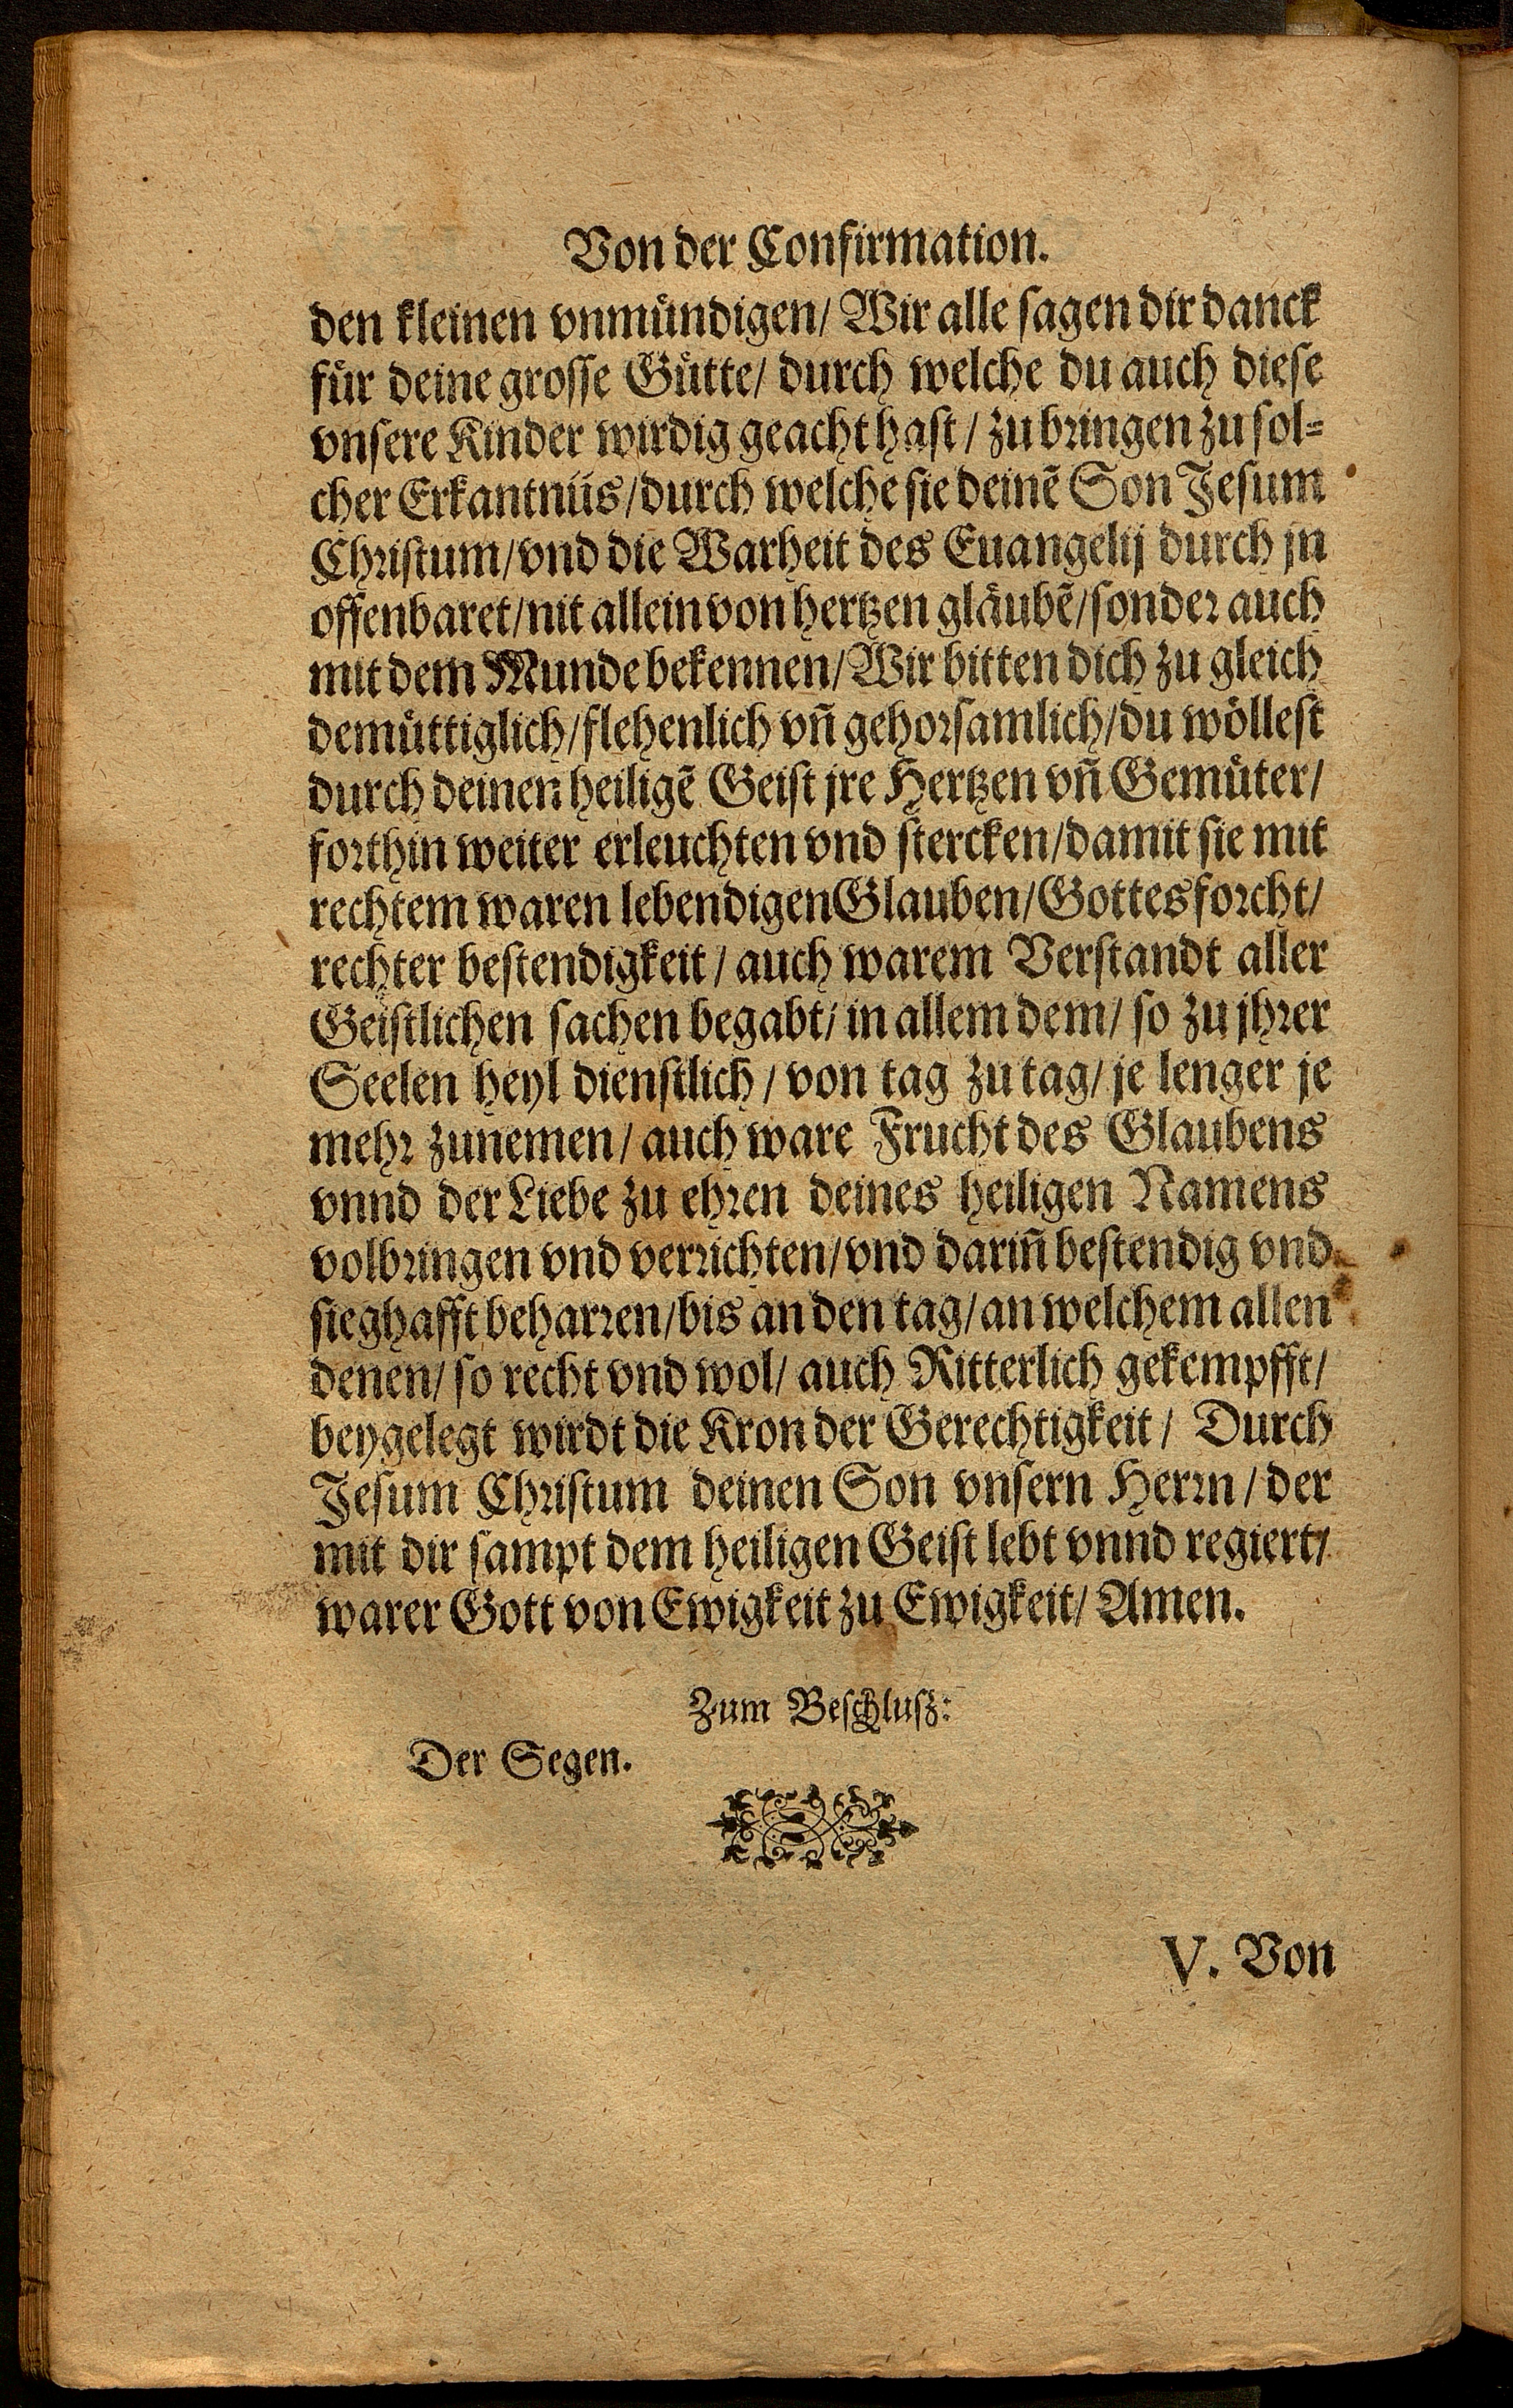 Von der Confirmation.
den kleinen vnmündigen/ Wir alle sagen dir danck
für deine grosse Gütte/ durch welche du auch diese
vnsere Kinder wirdig geacht hast/ zu bringen zu sol=
cher Erkantnüs/ durch welche sie deinē Son Jesum
Christum/ vnd die Warheit des Euangelij durch jn
offenbaret/ nit allein von hertzen gläubē/ sonder auch
mit dem Munde bekennen/ Wir bitten dich zu gleich
demüttiglich/ flehenlich vñ gehorsamlich/ du wöllest
durch deinen heiligē Geist jre Hertzen vñ Gemüter/
forthin weiter erleuchten vnd stercken/ damit sie mit
rechtem waren lebendigen Glauben/ Gottesforcht/
rechter bestendigkeit/ auch warem Verstandt aller
Geistlichen sachen begabt/ in allem dem/ so zu jhrer
Seelen heyl dienstlich/ von tag zu tag/ je lenger je
mehr zunemen/ auch ware Frucht des Glaubens
vnnd der Liebe zu ehren deines heiligen Namens
volbringen vnd verrichten/ vnd dariñ bestendig vnd
sieghafft beharren/ bis an den tag/ an welchem allen
denen/ so recht vnd wol/ auch Ritterlich gekempfft/
beygelegt wirdt die Kron der Gerechtigkeit/ Durch
Jesum Christum deinen Son vnsern Herrn/ der
mit dir sampt dem heiligen Geist lebt vnnd regiert/
warer Gott von Ewigkeit zu Ewigkeit/ Amen.
Zum Beschlusz:
Der Segen.
V. Von